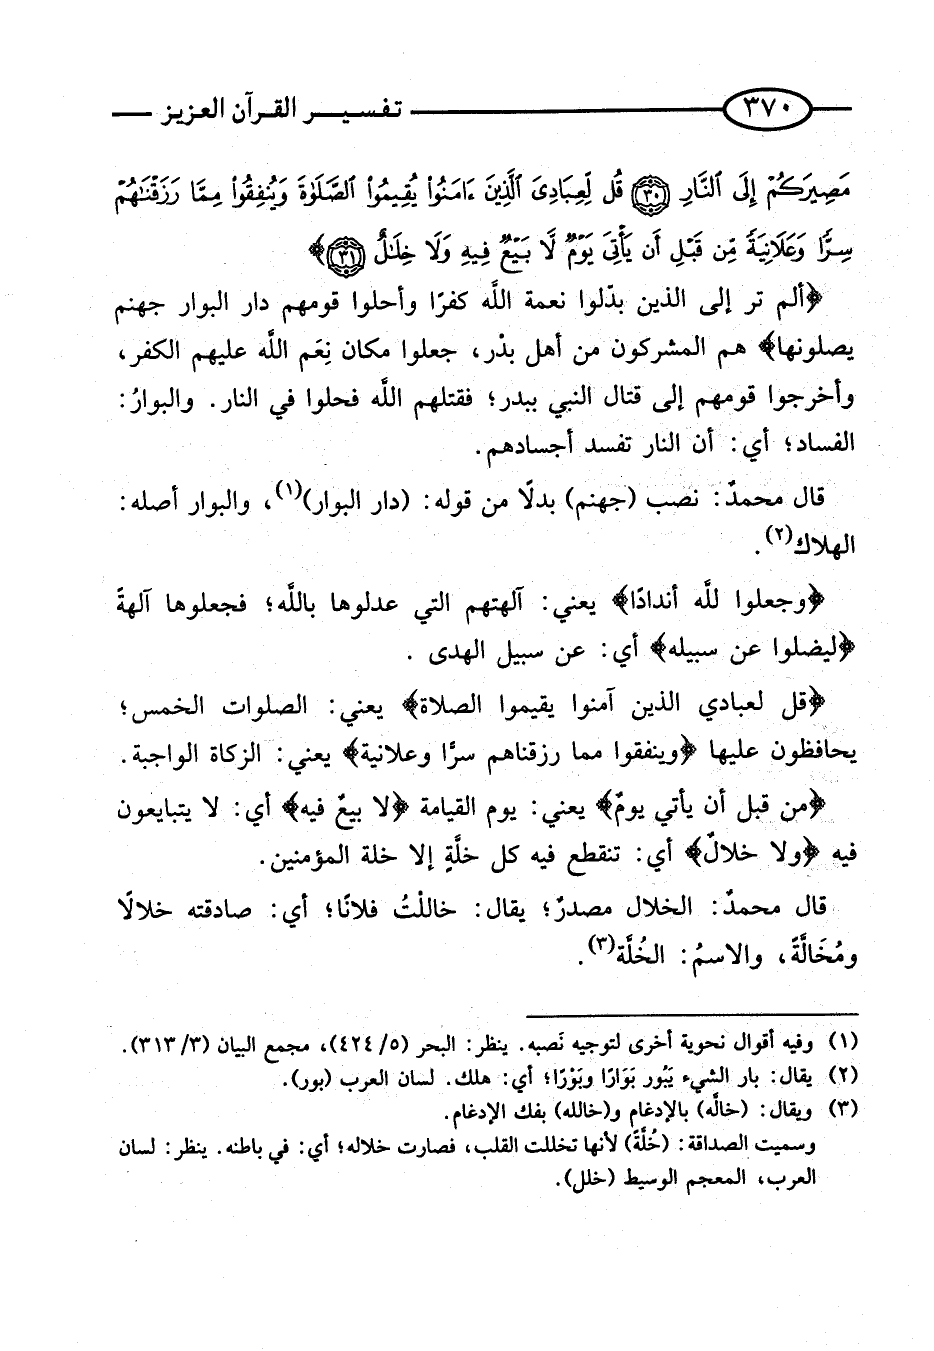 ٣٧٠ تفسير القرآن العزيز
مَصِيرَكُمْ إِلَى ٱلنَّارِ ﴿٣٠﴾ قُل لِّعِبَادِىَ ٱلَّذِينَ ءَامَنُوا۟ يُقِيمُوا۟ ٱلصَّلَوٰةَ وَيُنفِقُوا۟ مِمَّا رَزَقْنَـٰهُمْ
سِرًّا وَعَلَانِيَةً مِّن قَبْلِ أَن يَأْتِىَ يَوْمٌ لَّا بَيْعٌ فِيهِ وَلَا خِلَـٰلٌ ﴿٣١﴾﴾
﴿ألم تر إلى الذين بدّلوا نعمة اللَّه كفرًا وأحلوا قومهم دار البوار جهنم
يصلونها﴾ هم المشركون من أهل بدْر، جعلوا مكان نِعَم اللَّه عليهم الكفر،
وأخرجوا قومهم إلى قتال النبي ببدر؛ فقتلهم اللَّه فحلوا في النار. والبوارُ:
الفساد؛ أي: أن النار تفسد أجسادهم.
قال محمدٌ: نصب (جهنم) بدلًا من قوله: (دار البوار)(١)، والبوار أصله:
الهلاك(٢).
﴿وجعلوا للَّه أندادًا﴾ يعني: آلهتهم التي عدلوها باللَّه؛ فجعلوها آلهةً
﴿ليضلوا عن سبيله﴾ أي: عن سبيل الهدى .
﴿قل لعبادي الذين آمنوا يقيموا الصلاة﴾ يعني: الصلوات الخمس؛
يحافظون عليها ﴿وينفقوا مما رزقناهم سرًّا وعلانية﴾ يعني: الزكاة الواجبة.
﴿من قبل أن يأتي يومٌ﴾ يعني: يوم القيامة ﴿لا بيعٌ فيه﴾ أي: لا يتبايعون
فيه ﴿ولا خلالٌ﴾ أي: تنقطع فيه كل خلَّةٍ إلا خلة المؤمنين.
قال محمدٌ: الخلال مصدرٌ؛ يقال: خاللْتُ فلانًا؛ أي: صادقته خلالًا
ومُخَالَّةً، والاسمُ: الخُلَّة(٣).
(١) وفيه أقوال نحوية أخرى لتوجيه نَصبه. ينظر: البحر (٥/ ٤٢٤)، مجمع البيان (٣/ ٣١٣).
(٢) يقال: بار الشيء يَبُور بَوَارًا وبَوْرًا؛ أي: هلك. لسان العرب (بور).
(٣) ويقال: (خالَّه) بالإدغام و(خالله) بفك الإدغام.
وسميت الصداقة: (خُلَّةً) لأنها تخللت القلب، فصارت خلاله؛ أي: في باطنه. ينظر: لسان
العرب، المعجم الوسيط (خلل).